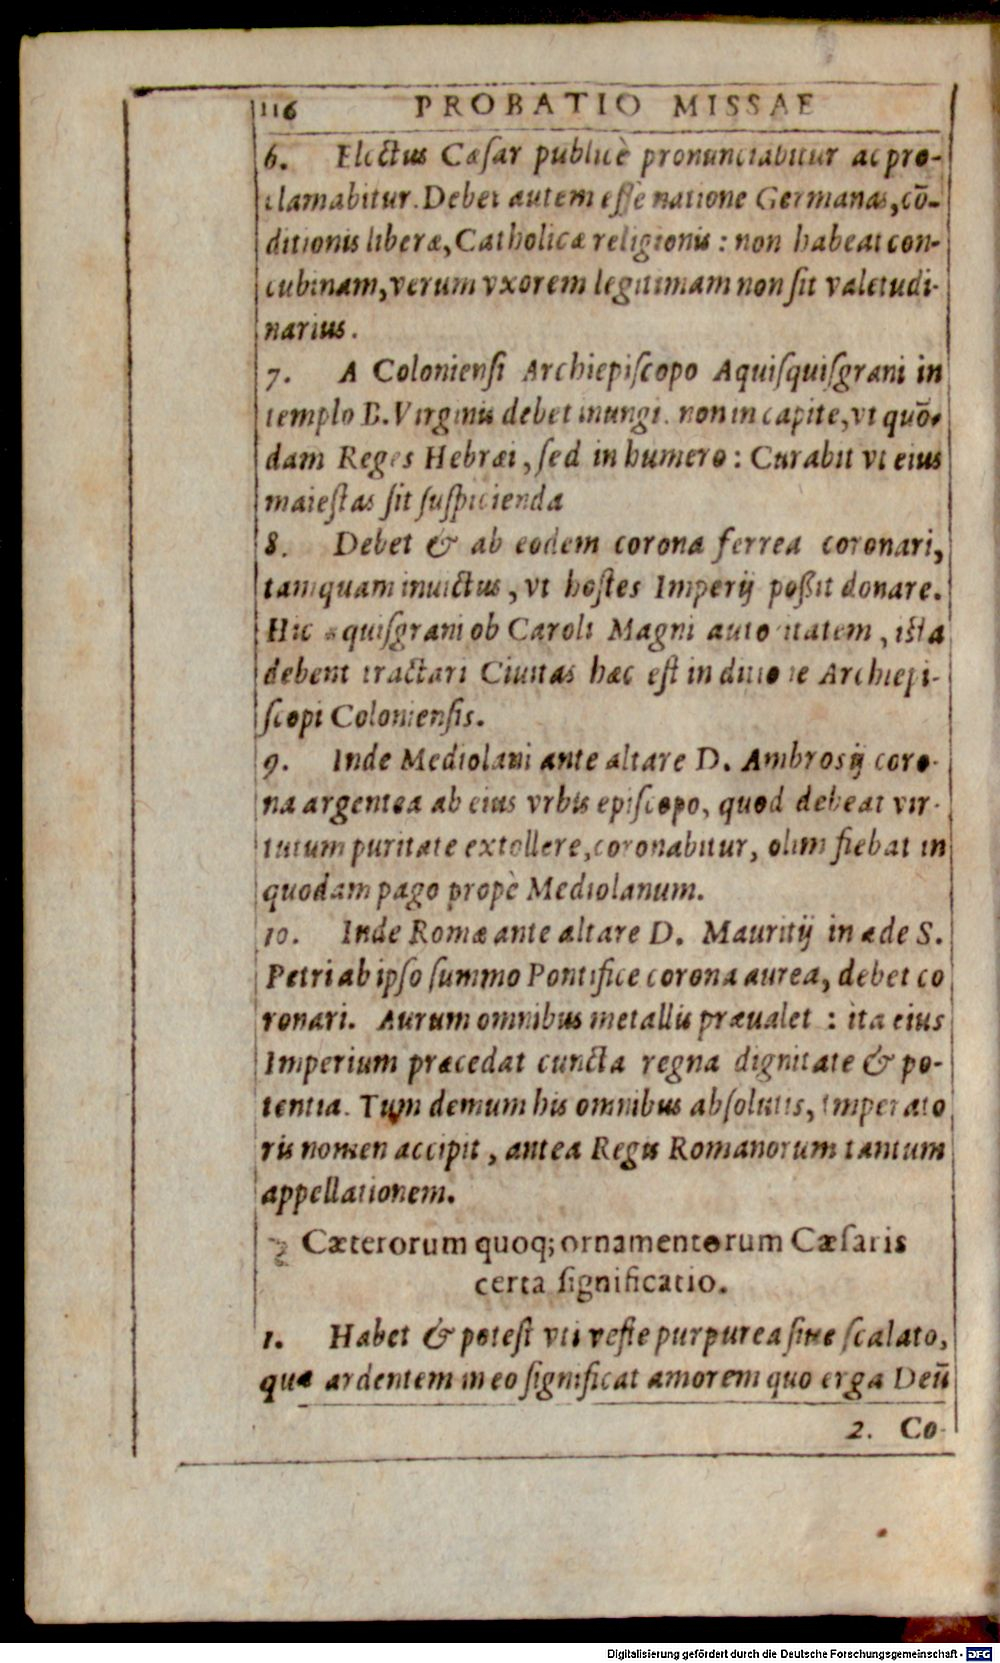 116 PROBATIO MISSAE
6. Electus Cæſar publicè pronunciabitur ac pro-
clamabitur. Debet autem eſſe natione Germanas, cō-
ditionis liberæ, Catholicæ religionis : non habeat con-
cubinam, verum vxorem legitimam non ſit valetudi-
narius.
7. A Colonienſi Archiepiſcopo Aquiſquiſgrani in
templo B. Virginis debet inungi. non in capite, vt quō-
dam Reges Hebræi, ſed in humero : Curabit vt eius
maieſtas ſit ſuſpicienda
8. Debet & ab eodem corona ferrea coronari,
tamquam inuictus, vt hoſtes Imperij poßit donare.
Hic aquiſgrani ob Caroli Magni autoritatem, iſta
debent tractari Ciuitas hæc eſt in ditione Archiepi-
ſcopi Colonienſis.
9. Inde Mediolani ante altare D. Ambrosij coro-
na argentea ab eius vrbis epiſcopo, quod debeat vir-
tutum puritate extollere, coronabitur, olim fiebat in
quodam pago propè Mediolanum.
10. Inde Romæ ante altare D. Mauritij in æde S.
Petri ab ipſo ſummo Pontifice corona aurea, debet co
ronari. Aurum omnibus metallis præualet : ita eius
Imperium præcedat cuncta regna dignitate & po-
tentia. Tum demum his omnibus abſolutis, Imperato
ris nomen accipit, antea Regis Romanorum tantum
appellationem.
Cæterorum quoq; ornamentorum Cæſaris
certa ſignificatio.
1. Habet & poteſt vti veſte purpurea ſiue ſcalato,
quæ ardentem in eo ſignificat amorem quo erga Deū
2. Co-
Digitalisierung gefördert durch die Deutsche Forschungsgemeinschaft - DFG